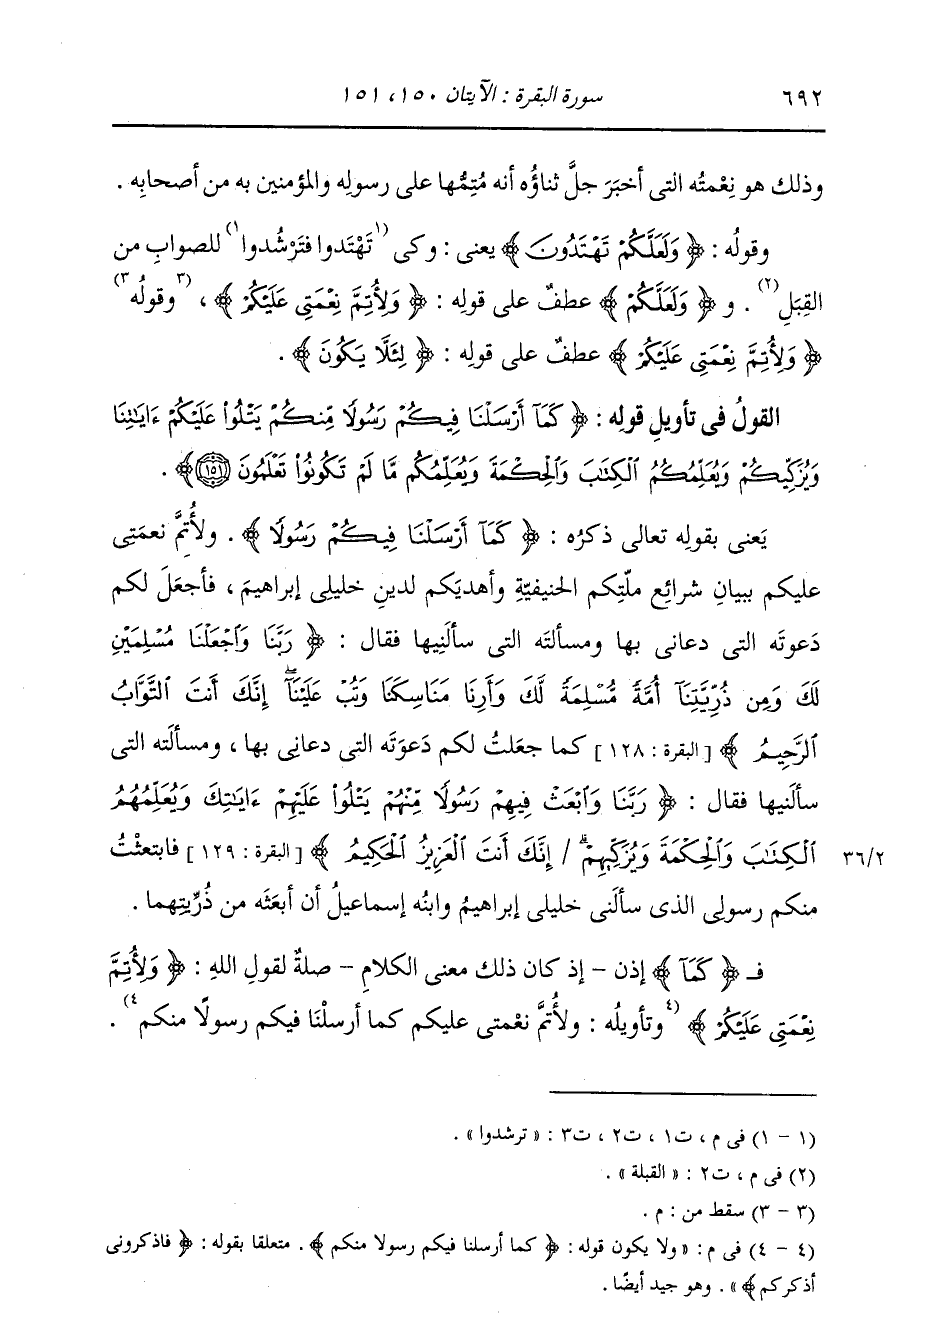 ٦٩٢ سورة البقرة : الآيتان ١٥٠، ١٥١
وذلك هو نِعْمتُه التى أخبَرَ جلَّ ثناؤُه أنه مُتِمُّها على رسولِه والمؤمنين به من أصحابِه .
وقولُه : ﴿ وَلَعَلَّكُمْ تَهْتَدُونَ ﴾ يعنى : وكى (١تَهْتَدوا فتَرْشُدوا١) للصوابِ من
القِبَلِ(٢) . و ﴿ وَلَعَلَّكُمْ ﴾ عطفٌ على قولِه : ﴿ وَلِأُتِمَّ نِعْمَتِى عَلَيْكُمْ ﴾ ، (٣وقولُه٣)
﴿ وَلِأُتِمَّ نِعْمَتِى عَلَيْكُمْ ﴾ عطفٌ على قولِه : ﴿ لِئَلَّا يَكُونَ ﴾ .
القولُ فى تأويلِ قوله : ﴿ كَمَآ أَرْسَلْنَا فِيكُمْ رَسُولًا مِّنكُمْ يَتْلُوا۟ عَلَيْكُمْ ءَايَٰتِنَا
وَيُزَكِّيكُمْ وَيُعَلِّمُكُمُ ٱلْكِتَٰبَ وَٱلْحِكْمَةَ وَيُعَلِّمُكُم مَّا لَمْ تَكُونُوا۟ تَعْلَمُونَ ١٥١ ﴾ .
يَعنى بقولِه تعالى ذكرُه : ﴿ كَمَآ أَرْسَلْنَا فِيكُمْ رَسُولًا ﴾ . ولأُتِمَّ نعمَتِى
عليكم ببيانِ شرائعِ ملّتِكم الحنيفيّةِ وأهديَكم لدينِ خليلِى إبراهيمَ ، فأجعَلَ لكم
دَعوتَه التى دعانى بها ومسألتَه التى سألَنِيها فقال : ﴿ رَبَّنَا وَٱجْعَلْنَا مُسْلِمَيْنِ
لَكَ وَمِن ذُرِّيَّتِنَآ أُمَّةً مُّسْلِمَةً لَّكَ وَأَرِنَا مَنَاسِكَنَا وَتُبْ عَلَيْنَآۖ إِنَّكَ أَنتَ ٱلتَّوَّابُ
ٱلرَّحِيمُ ﴾ [ البقرة : ١٢٨ ] كما جعَلتُ لكم دَعوَتَه التى دعانِى بها ، ومسألتَه التى
سألَنِيها فقال : ﴿ رَبَّنَا وَٱبْعَثْ فِيهِمْ رَسُولًا مِّنْهُمْ يَتْلُوا۟ عَلَيْهِمْ ءَايَٰتِكَ وَيُعَلِّمُهُمُ
٣٦/٢ ٱلْكِتَٰبَ وَٱلْحِكْمَةَ وَيُزَكِّيهِمْۖ / إِنَّكَ أَنتَ ٱلْعَزِيزُ ٱلْحَكِيمُ ﴾ [ البقرة : ١٢٩ ] فابتعثْتُ
منكم رسولِى الذى سألَنى خليلِى إبراهيمُ وابنُه إسماعيلُ أن أبعَثَه من ذُرِّيتِهما .
فـ ﴿ كَمَآ ﴾ إذن - إذ كان ذلك معنى الكلامِ - صلةٌ لقولِ اللهِ : ﴿ وَلِأُتِمَّ
نِعْمَتِى عَلَيْكُمْ ﴾ (٤وتأويلُه : ولأُتمَّ نعْمتى عليكم كما أرسلْنَا فيكم رسولًا منكم٤) .
(١ - ١) فى م ، ت١ ، ت٢ ، ت٣ : « ترشدوا » .
(٢) فى م ، ت٢ : « القبلة » .
(٣ - ٣) سقط من : م .
(٤ - ٤) فى م : « ولا يكون قوله : ﴿ كما أرسلنا فيكم رسولا منكم ﴾ . متعلقا بقوله : ﴿ فاذكرونى
أذكركم ﴾ » . وهو جيد أيضًا .